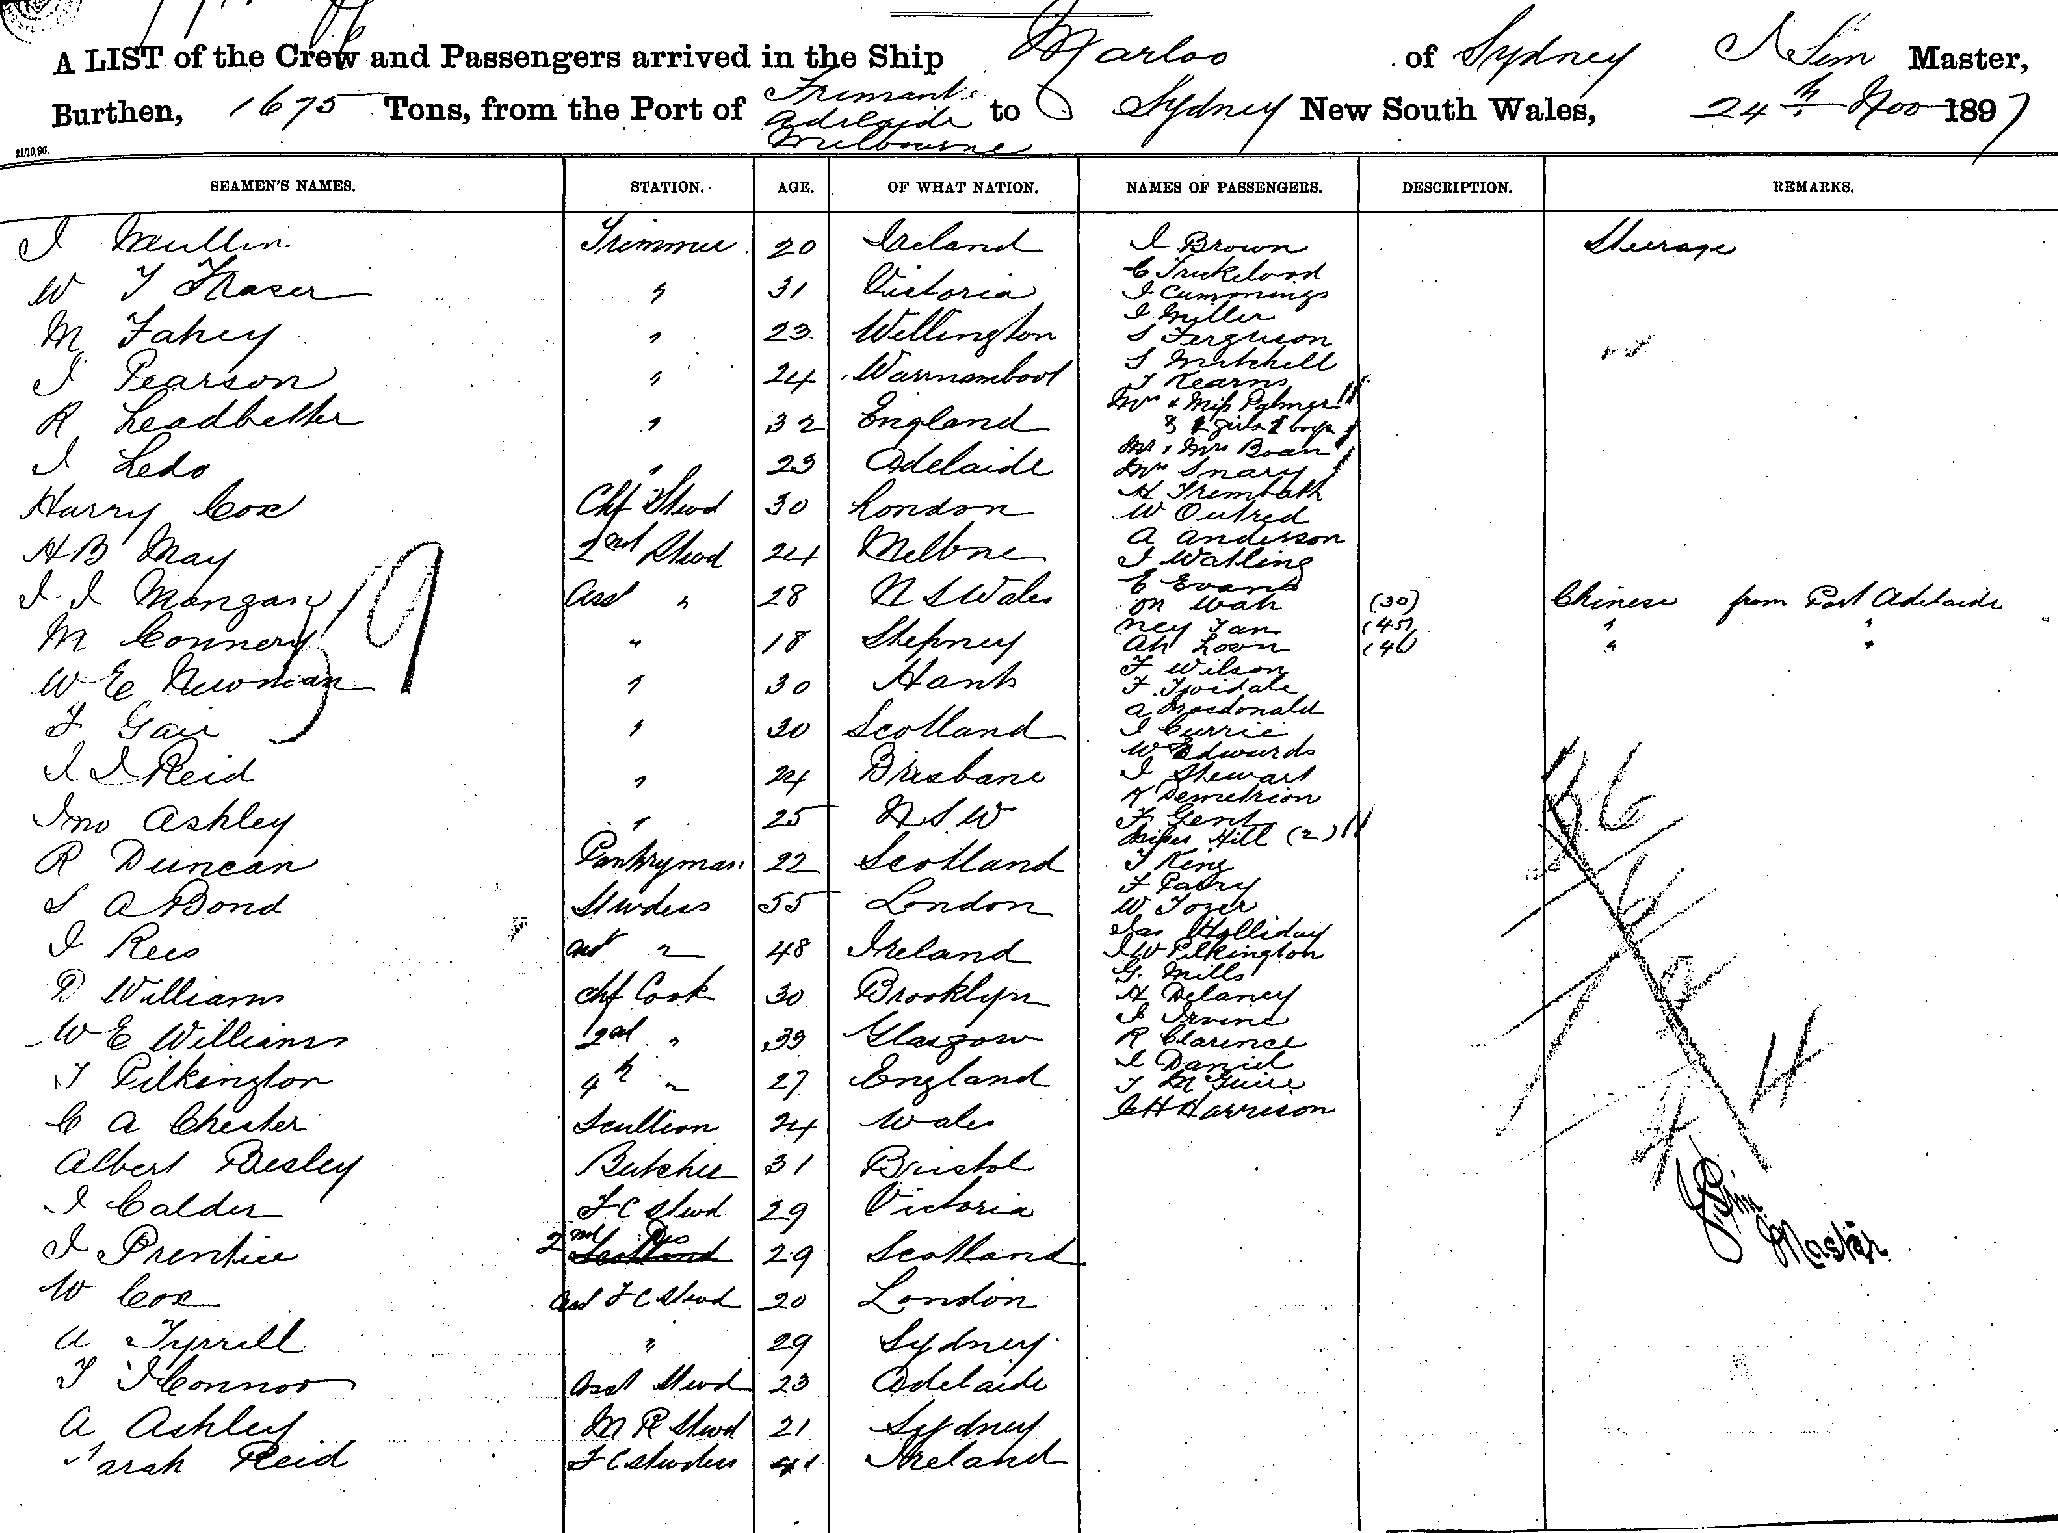 A LIST of the Crew and Passengers arrived in the Ship Marloo of Sydney J Sim Master,
Burthen, 1675 Tons, from the Port of Fremantle Adelaide Melbourne to Sydney New South Wales, 24th Nov 1897
21/10.96.
SEAMEN'S NAMES. STATION. AGE. OF WHAT NATION. NAMES OF PASSENGERS. DESCRIPTION. REMARKS.
J Mullin Trimmer 20 Ireland
W T Fraser " 31 Victoria
M Fahey " 23 Wellington
J Pearson " 24 Warrnambool
R Leadbetter " 32 England
J Ledo " 23 Adelaide
Harry Cox Chf Stwd 30 London
H B May 2nd Stwd 24 Melbne
J J Mangan Asst " 28 N S Wales
M Connery " 18 Stepney
W E Newman " 30 Hants
F Gair " 30 Scotland
J J Reid " 24 Brisbane
Jno Ashley " 25 N S W
R Duncan Pantryman 22 Scotland
S A Bond Stwdess 55 London
J Rees Asst " 48 Ireland
D Williams Chf Cook 30 Brooklyn
W E Williams 2nd " 33 Glasgow
T Pilkington 4th " 27 England
C A Chester Scullion 24 Wales
Albert Besley Butcher 31 Bristol
J Calder F C Stwd 29 Victoria
J Prentice 2nd Do 29 Scotland
W Cox Asst F C Stwd 20 London
A Tyrrill " 29 Sydney
T J Connor Asst Stwd 23 Adelaide
A Ashley M R Stwd 21 Sydney
Sarah Reid F C Stwdess 41 Ireland
J Brown Steerage
C Trickeland
J Cummings
J Miller
S Ferguson
S Mitchell
T Kearns
Mrs & Miss Palmer
& girls boys
Mr & Mrs Boan
Mrs Snary
H Trembath
W Outred
A Anderson
J Watling
E Evans
On Wah (30) Chinese from Port Adelaide
Ney Tan (45) " "
Ah Loon (46) " "
F Wilson
F Tividale
A Macdonald
J Currie
W Edwards
J Stewart
K Demetrion
F Gent
Misses Hill (2)
T King
F Parry
W Tozer
Jas Holliday
J W Pilkington
G. Mills
H Delaney
J Irvine
R Clarence
J Daniel
T McGuire
C H Harrison
19
J Sim
Master